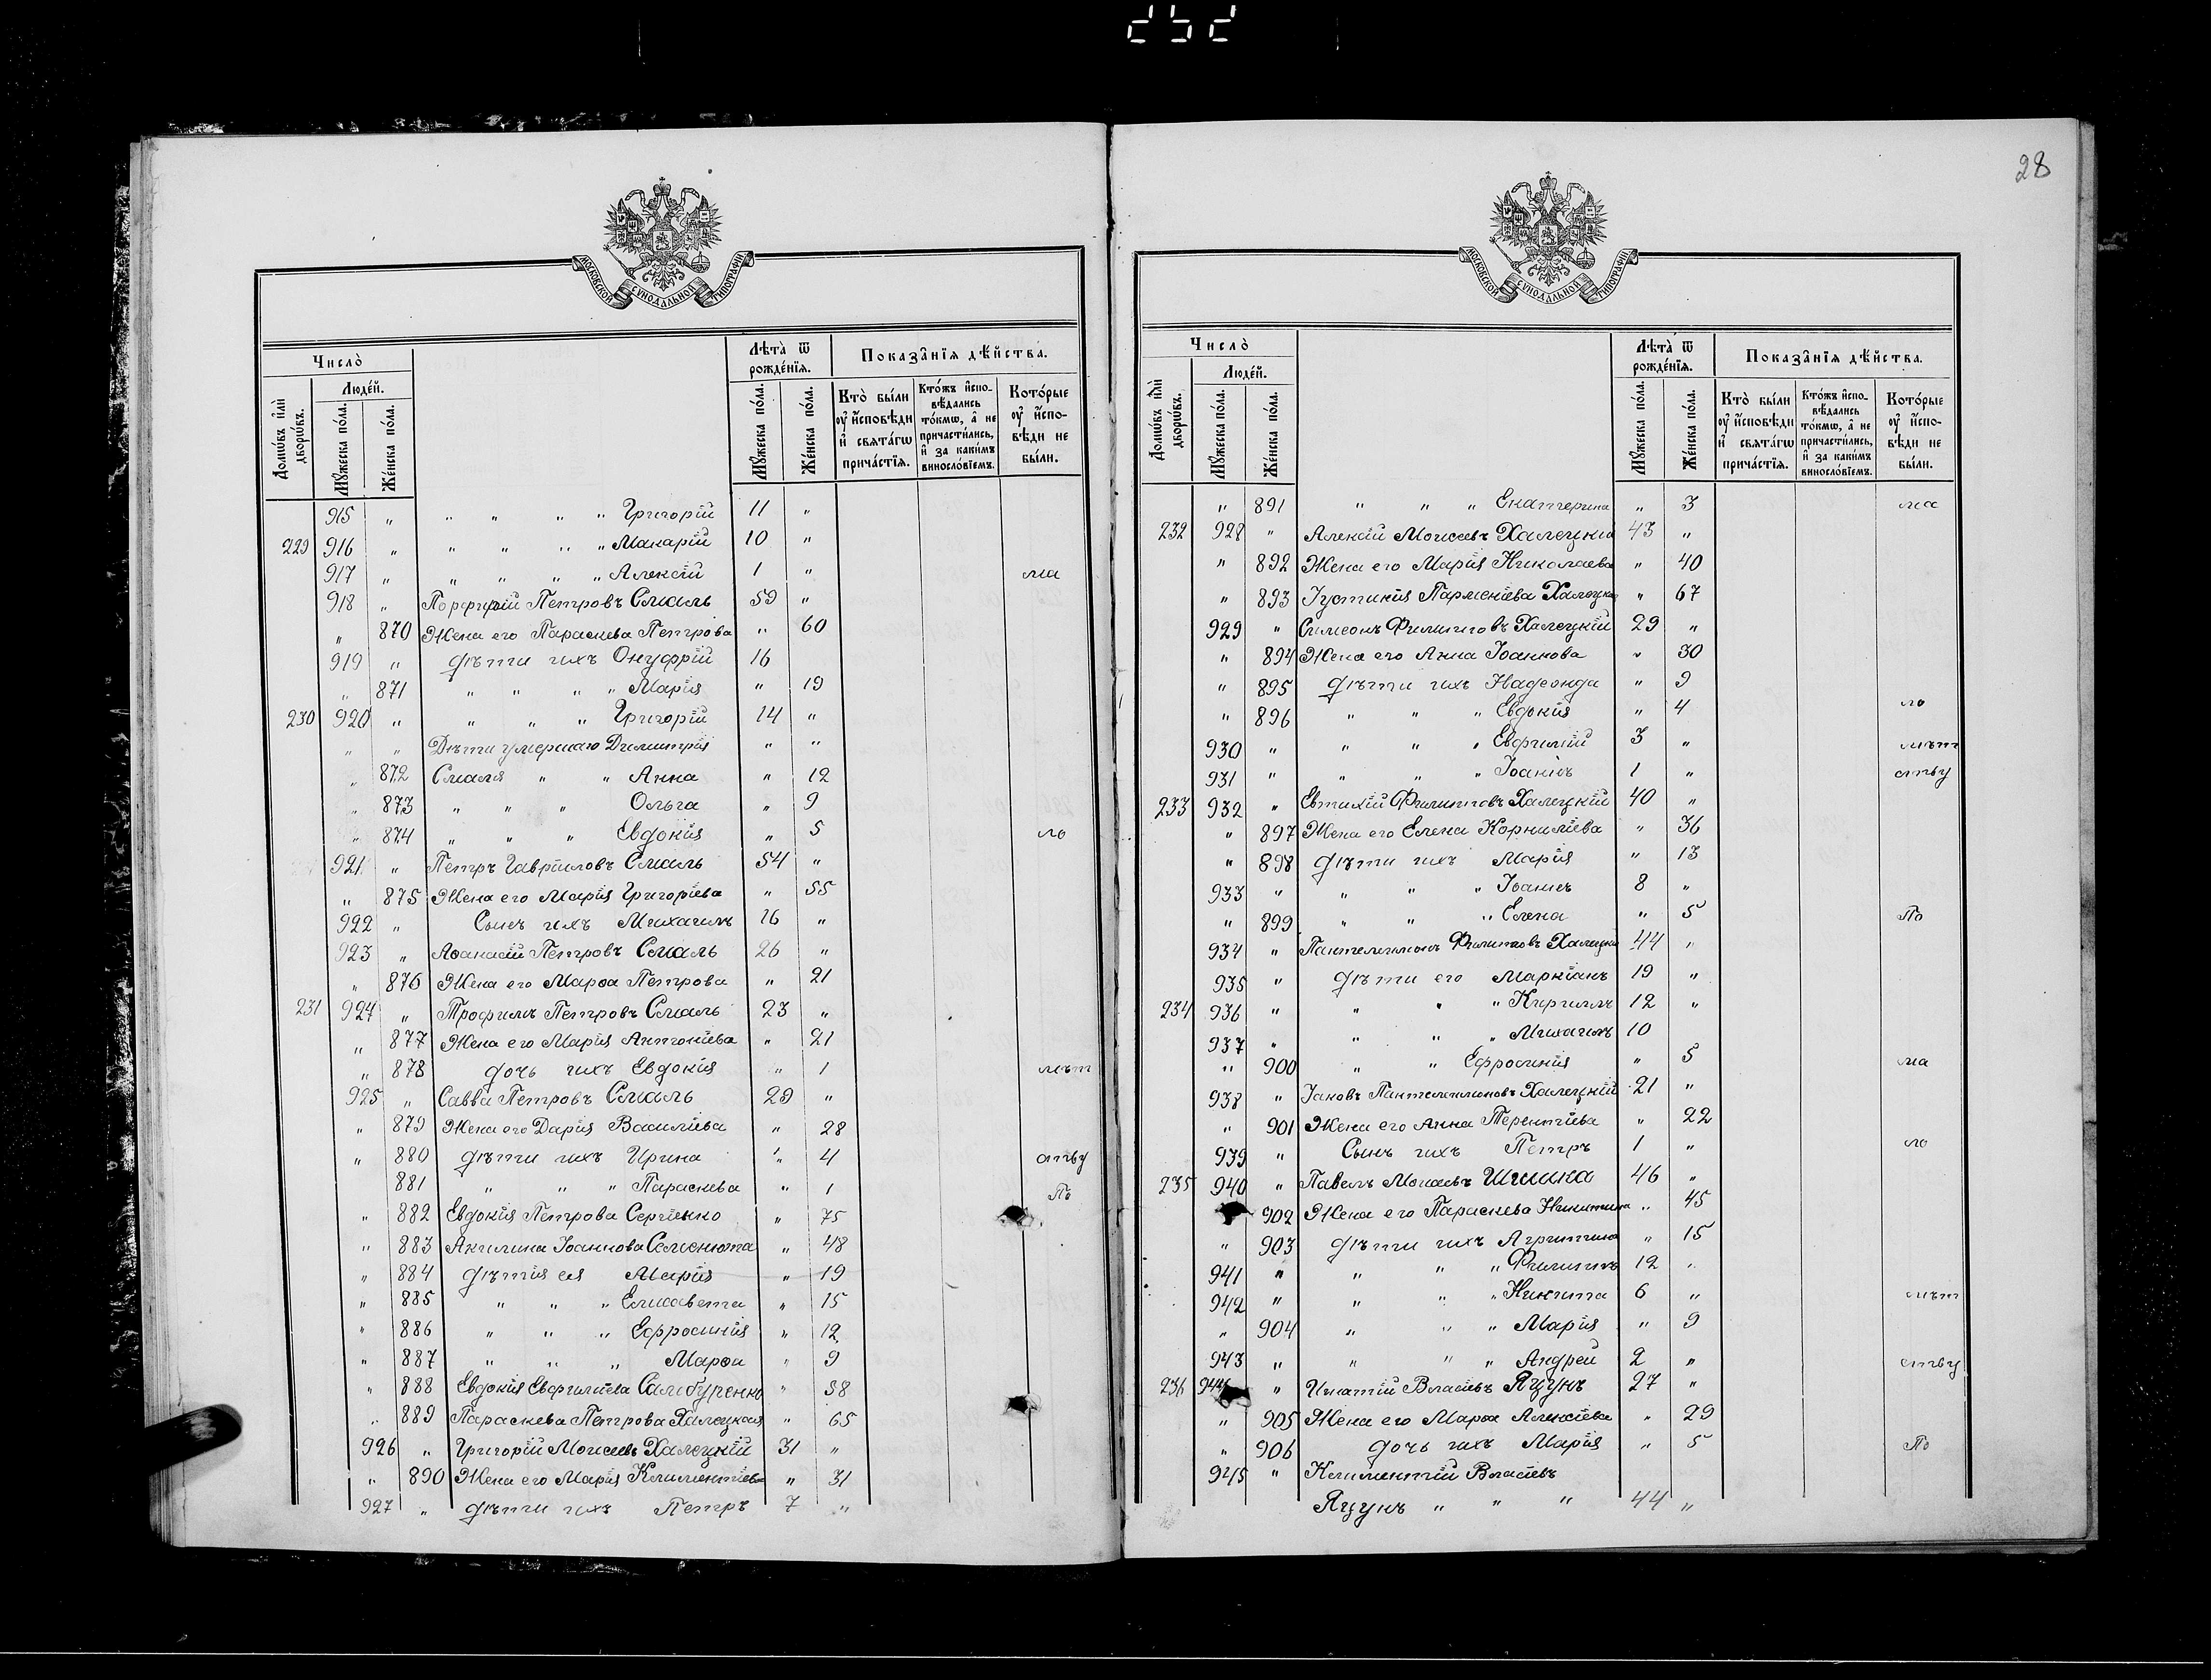 252
28
МОСКОВСКОЙ СѴНОДАЛЬНОЙ ТИПОГРАФІИ
Число̀
Лѣта̀ ѿ рожде́нїѧ.
Показа̑нїѧ дѣ́йства.
Домѡ́въ и҆лѝ дворѡ́въ.
Люде́й.
Мꙋ́жеска по́ла.
Же́нска по́ла.
Мꙋ́жеска по́ла.
Же́нска по́ла.
Кто̀ бы́ли ᲂу҆ и҆́сповѣди и҆ свѧта́гѡ прича́стїѧ.
Кто́жъ и҆спо-вѣ́дались то́кмѡ, а҆ не причасти́лись, и҆ за каки́мъ виносло́вїемъ.
Кото́рые ᲂу҆ и҆́спо-вѣди не бы́ли.
915 " " " " " Григорій 11 "
229 916 " " " " " Макарій 10 "
917 " " " " " Алексій 1 " ма
918 " Порфирій Петровъ Смаль 59 "
" 870 Жена его Параскева Петрова " 60
919 " Дѣти ихъ Онуфрій 16
" 871 " " " " Марія " 19
230 920 " " " " Григорій 14 "
" " Дѣти умершаго Димитрія " "
" 872 Смаля " " Анна " 12
" 873 " " " Ольга " 9
" 874 " " " Евдокія " 5 ло
921 " Петръ Гавріиловъ Смаль 54 "
" 875 Жена его Марія Григоріева " 55
922 " Сынъ ихъ Михаилъ 16 "
923 " Аѳанасій Петровъ Смаль 26 "
" 876 Жена его Марѳа Петрова " 21
231 924 " Трофимъ Петровъ Смаль 23 "
" 877 Жена его Марія Антоніева " 21
" 878 дочь ихъ Евдокія " 1 лѣт
925 " Савва Петровъ Смаль 29 "
" 879 Жена его Дарія Василіева " 28
" 880 Дѣти ихъ Ирина " 4 ству
881 " " " Параскева " 1 По
" 882 Евдокія Петрова Сергіенко " 75
" 883 Акилина Іоаннова Семенюта " 48
" 884 Дѣтія ея Марія " 19
" 885 " " " Елисавета " 15
" 886 " " " Ефросинія " 12
" 887 " " " Марѳа " 9
" 888 Евдокія Евфиміева Самбуренко " 58
" 889 Параскева Петрова Халецкая " 65
926 " Григорій Моисеевъ Халецкій 31 "
" 890 Жена его Марія Климентіева " 31
927 " Дѣти ихъ Петръ 7 "
МОСКОВСКОЙ СѴНОДАЛЬНОЙ ТИПОГРАФІИ
Число̀
Лѣта̀ ѿ рожде́нїѧ.
Показа̑нїѧ дѣ́йства.
Домѡ́въ и҆лѝ дворѡ́въ.
Люде́й.
Мꙋ́жеска по́ла.
Же́нска по́ла.
Мꙋ́жеска по́ла.
Же́нска по́ла.
Кто̀ бы́ли ᲂу҆ и҆́сповѣди и҆ свѧта́гѡ прича́стїѧ.
Кто́жъ и҆спо-вѣ́дались то́кмѡ, а҆ не причасти́лись, и҆ за каки́мъ виносло́вїемъ.
Кото́рые ᲂу҆ и҆́спо-вѣди не бы́ли.
" 891 " " " Екатерина " 3 ма
232 928 " Алексій Моисеевъ Халецкій 43 "
" 892 Жена его Марія Николаева " 40
" 893 Іустинія Парменіева Халецкая " 67
929 " Симеонъ Филипповъ Халецкій 29 "
" 894 Жена его Анна Іоаннова " 30
" 895 Дѣти ихъ Надежда " 9
" 896 " " " Евдокія " 4 ло
930 " " " " Евфимій 3 " лѣт
931 " " " " Іоаннъ 1 " ству
233 932 " Евтихій Филипповъ Халецкій 40 "
" 897 Жена его Елена Корниліева " 36
" 898 Дѣти ихъ Марія " 13
933 " " " " Іоаннъ 8 "
" 899 " " " Елена " 5 По
934 " Пантелеимонъ Филипповъ Халецкій 44 "
935 " Дѣти его Маркіанъ 19 "
234 936 " " " " Кириллъ 12 "
937 " " " " Михаилъ 10
" 900 " " Ефросинія " 5 ма
938 " Іаковъ Пантелеимоновъ Халецкій 21 "
" 901 Жена его Анна Терентіева " 22
939 " Сынъ ихъ Петръ 1 " ло
235 940 " Павелъ Моисеевъ Шишка 46 "
902 Жена его Параскева Никитина " 45
" 903 Дѣти ихъ Агриппина " 15
941 " " " " Филиппъ 12 "
942 " " " " Никита 6 " лѣт
" 904 " " " Марія " 9
943 " " " " Андрей 2 " ству
236 944 " Игнатій Власіевъ Яцунъ 27 "
" 905 Жена его Марѳа Алексіева " 29
" 906 дочь ихъ Марія " 5 По
945 " Климентій Власіевъ
Яцунъ " " " 44 "